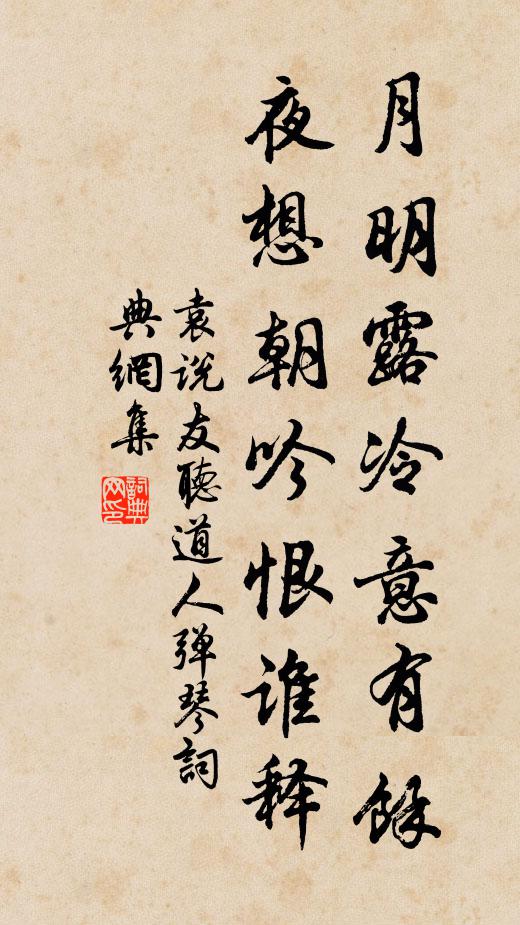 月明露冷意有餘
夜想朝吟恨谁释
袁説友聽道人弹琴詞
典網集
詞典网印